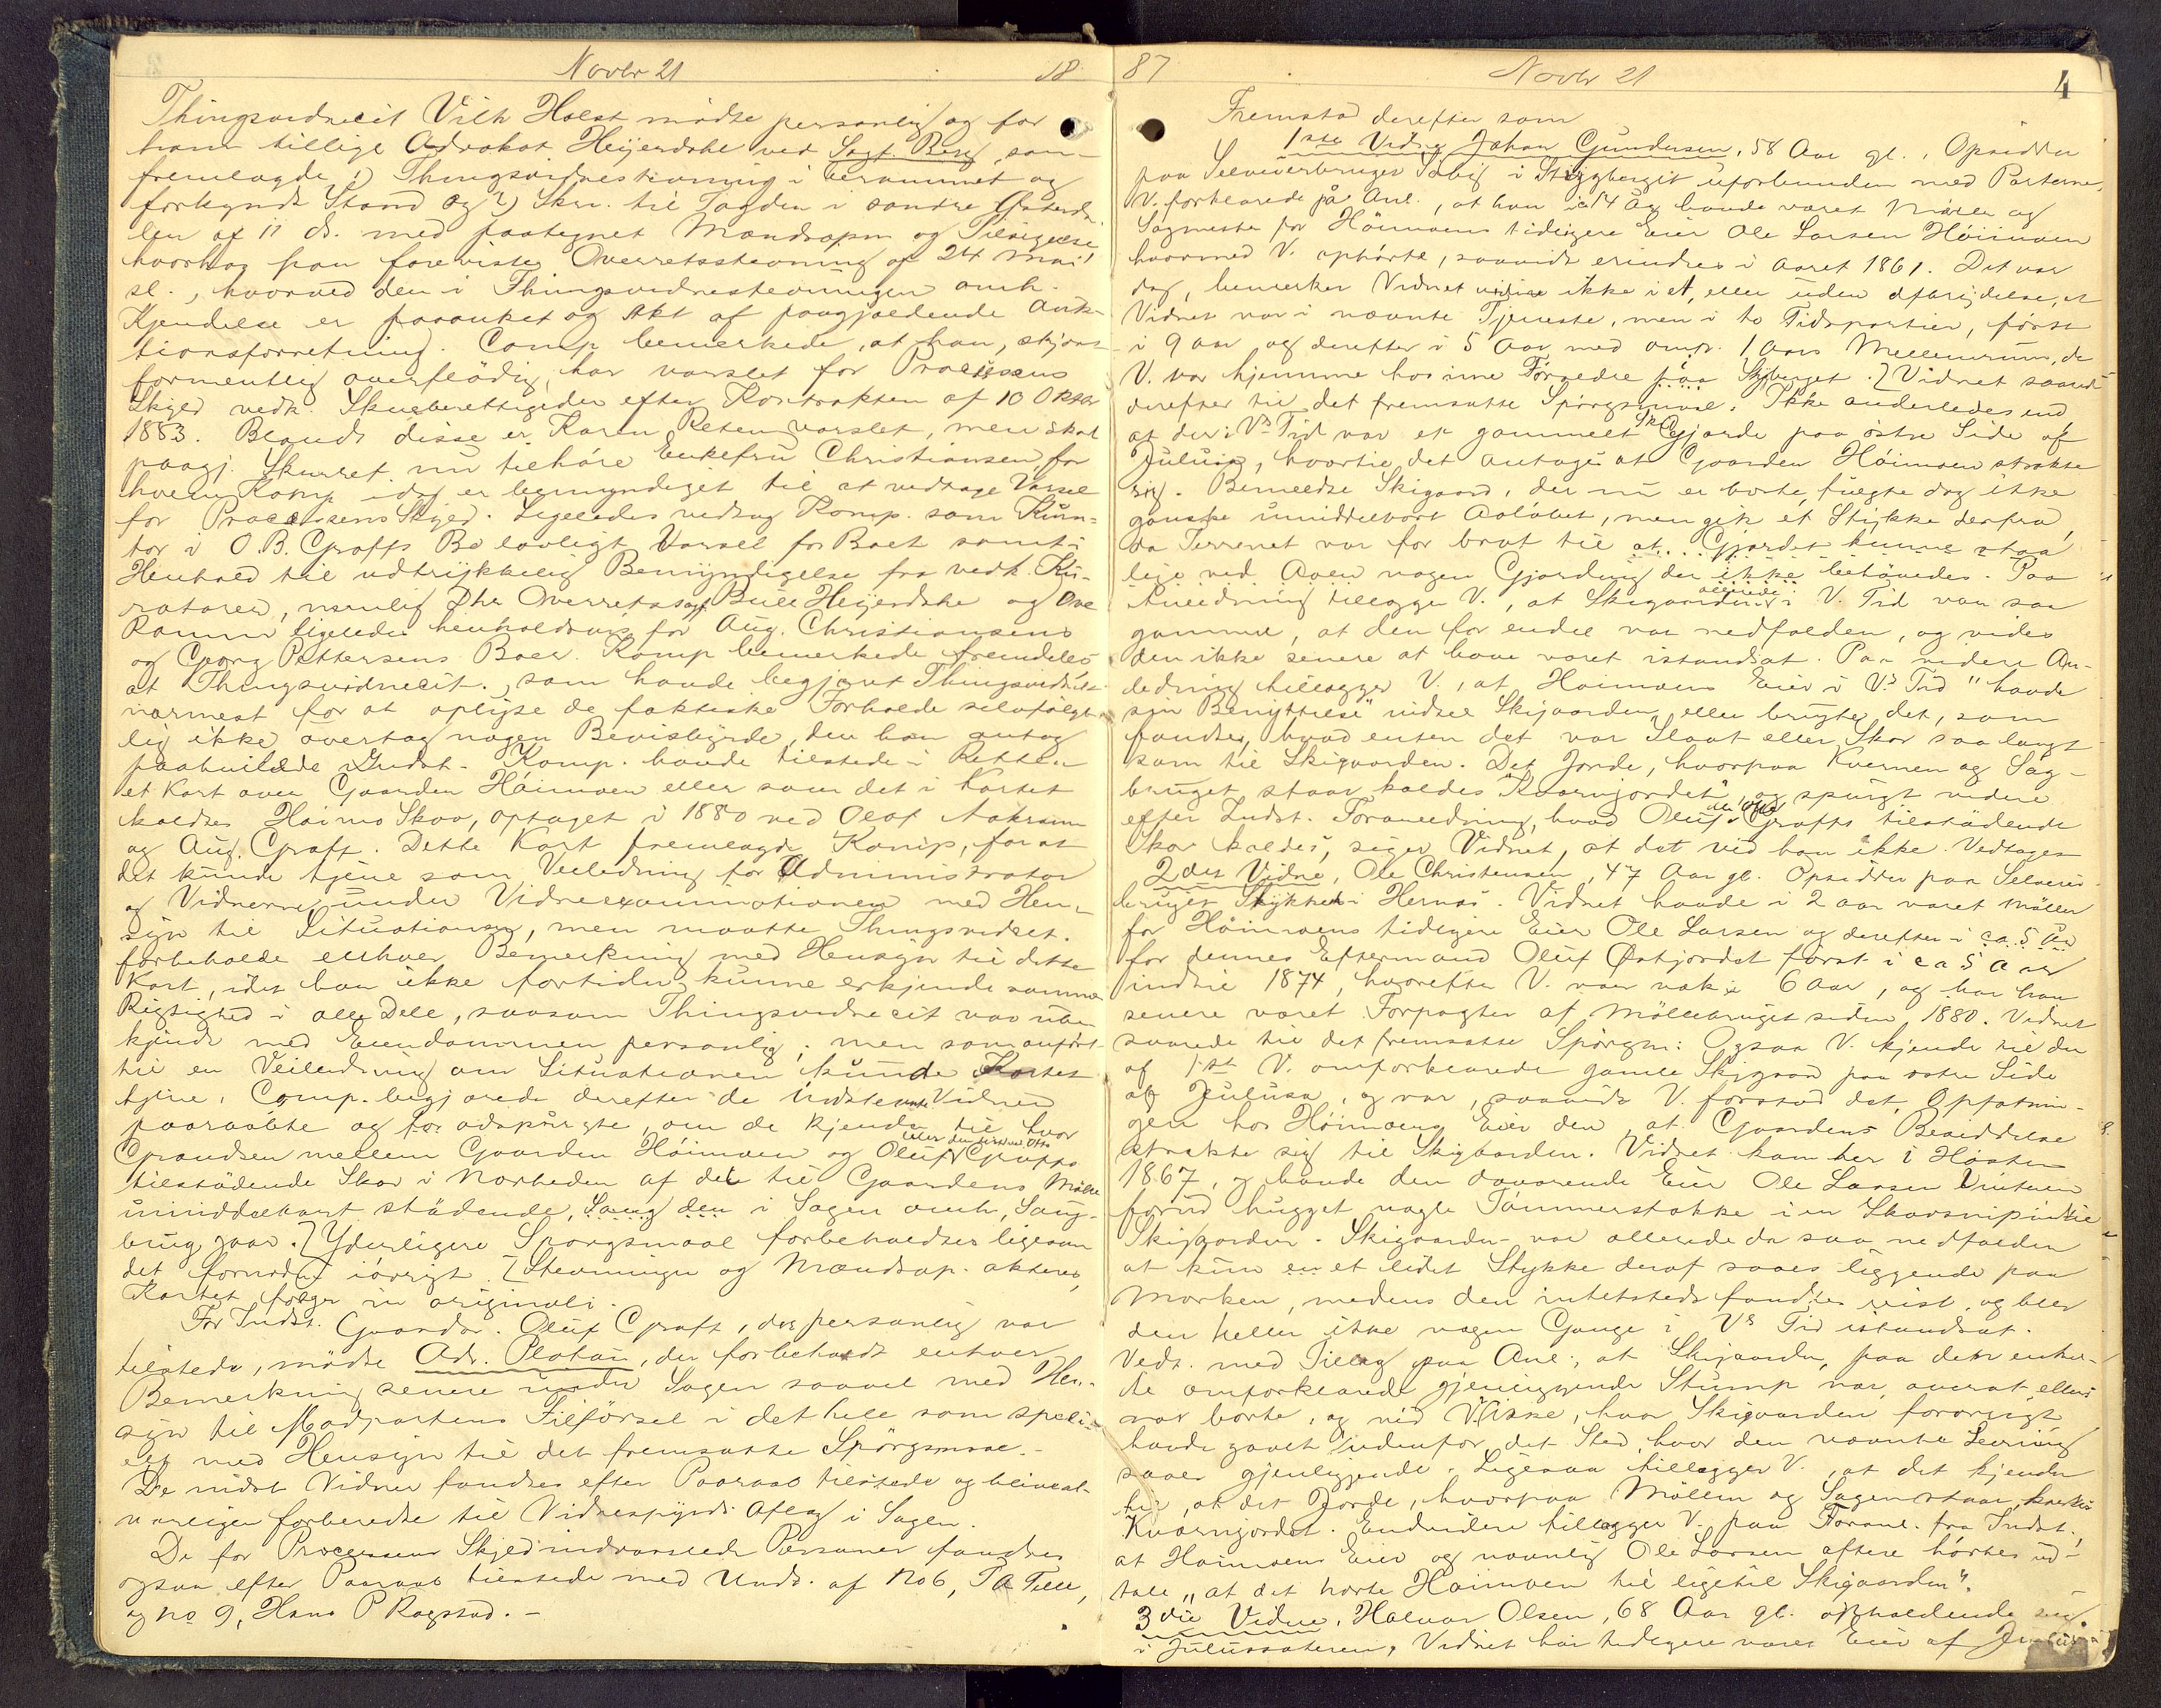 Novbr 21 18
Thingsvidnecit Vilh Holst mödte personlig og for
ham tillige Advokat Heijerdahl ved Sagf. Berg, som
fremlagde 1) Thingsvidnestevning i berammet og
forkyndt Stand og 2) Skr. til Fogden i søndre Østerda-
len af 11 ds. med paategnet Mandsopn og Tilsigelse
hvorhos han foreviste Overretsstevning af 24 Mai
sl., hvorved den i Thingsvidnestevningen omh.
Kjendelse er paaanket og Akt af paagjældende Auk-
tionsforretning. Comp. bemerkede, at han, skjønt
formentlig overflödig, har varslet for Processens
Skyld vedk. Skurberettigede efter Kontrakten af 10 Oktbr
1883. Blandt disse er Karen Reten varslet, men skal
paagj. Skurret nu tilhöre Enkefru Christiansen, for
hvem Komp idag er bemyndiget til at vedtage Varsel
for Processens Skyld. Ligeledes vedtog Komp. som Kura-
tor i O.B. Graffs Bo lovligt Varsel for Boet samt i
Henhold til udtrykkelig Bemyndigelse fra vedk. Ku-
ratorer, nemlig Dhr Overretssagf. Bull Heijerdahl og Ove
Ramm ligeledes henholdsvis for Aug. Christiansens
og Georg Pettersens Boer. Komp bemerkede fremdeles
at Thingsvidnecit., som havde begjært Thingsvidnet
nærmest for at oplyse de faktiske Forholde selvfølge-
lig ikke overtog nogen Bevisbyrde, den han antog
paahvilede Indst. Komp. havde tilstede i Retten
et Kart over Gaarden Höimoen eller som det i Kartet
kaldtes Höimo Skov, optaget i 1880 ved Olaf Aakrann
og Aug. Graff. Dette Kart fremlagde Komp, for at
det kunde tjene som Veiledning for Administrator
og Vidnerne under Vidneexaminationen med Hen-
syn til Situationen, men maatte Thingsvidnet.
forbeholde enhver Bemerkning med Hensyn til dette
Kart, idet han ikke fortiden kunne erkjende sammes
Rigtighed i alle Dele, saasom Thingsvidnecit var ube-
kjendt med Eiendommen personlig; men som anført
til en Veiledning om Situationen kunde Kartet
tjene. Comp. begjærede derefter de indstevnte Vidner
paaraabte og for adspurgte, om de kjendte til hvor
Grændsen mellem Gaarden Höimoen og Oluf eller den Otto Graffs
tilstödende Skov i Norheden af det til Gaardens Mölle
umiddelbart stödende, Saug den i Sagen omh. Saug-
brug gaar. [Yderligere Spörgsmaal forbeholdtes ligesom
det fornødne iövrigt. [Stevningen og Mandsop. akteres,
Kartet følger in originali.
For Indst. Gaardbr. Oluf Graff, der personlig var
tilstede, mödte Adv. Platou, der forbeholdt enhver
Bemerkning senere under Sagen saavel med Hen-
syn til Modpartens Tilförsel i det hele som speci-
elt med Hensyn til det fremsatte Spörgsmaal.-
De indst Vidner fandtes efter Paaraab tilstede og bleve al-
vorligen forberedte til Vidnespyrds Aflæg i Sagen.
De for Processens Skyld indvarslede Personer fandtes
ogsaa efter Paaraab tilstede med Undt. af No 6, T A Telle,
og No 9, Hans P Rogstad.-
87 Novbr 21 4
Fremstod derefter som
1ste Vidne Johan Gundersen, 58 Aar gl., Opsidder
paa Selveierbruget Sobig i Stiggberget uforbunden med Parterne.
V. forklarede på Anl., at han i 14 Aar havde været Möller og
Sagmester for Höimoens tidligere Eier Ole Larsen Höiimoen
hvormed V. ophörte, saavidt erindres i Aaret 1861. Det var
dog, bemerker Vidnet videre ikke i et, eller uden Afbrydelse, at
Vidnet var i nævnte Tjeneste, men i to Tidspartier, først
i 9 aar og derefter i 5 Aar med omtr. 1 Aars Mellemrum, da
V. var hjemme hos sine Forældre paa Skjberget. [Vidnet svarede
derefter til det fremsatte Spörgsmaal: Ikke anderledes end
at der i Vs Tid var et gammelt Skigjærde paa östre Side af
Julusia, hvortil det antoges at Gaarden Höimoen strakte
sig. Bemeldte Skigaard, der nu er borte, fulgte dog ikke
ganske umiddelbart Aalöbet, men gik et Stykke derfra,
da Terrenet var for brat til at Gjærdet kunne staa
lige ved Aaen nogen Gjærding der ikke behövedes. Paa
Anledning tillægger V., at Skigaarden allerede i V. Tid var saa
gammel, at den for endel var nedfalden, og vides
den ikke senere at have været istandsat. Paa videre An-
ledning tillægger V., at Höimoens Eier i Vs Tid "havde
sin Benyttelse" indtil Skigaarden eller brugte det, som
fandtes, hvad enten det var Slaat eller Skov saa langt
som til Skigaarden. Det Jorde, hvorpaa Kvernen og Sag-
bruget staar kaldes "Kvarnjordet" og spurgt videre
efter Indst. Foranledning, hvad Oluf eller Otto Graffs tilstödende
Skov kaldes, siger Vidnet, at det ved han ikke. Vedtages
2det Vidne, Ole Christensen, 47 Aar gl. Opsidder paa Selveier-
bruget Stykket i Hernes. Vidnet havde i 2 aar været Möller
for Höimoens tidligere Eier Ole Larsen og derefter i ca 5 Aar
for dennes Eftermand Oluf Østjordet först i ca 5 Aar
indtil 1874, hvorefter V. var væk i 6 aar, og har han
senere været Forpagter af Möllebruget siden 1880. Vidnet
svarede til det fremsatte Spörgm: Ogsaa V. kjendte til den
af 1st V. omforklarede gamle Skigaard paa östre Side
af Julusa, og var, saavidt V. forstod det, Opfatnin-
gen hos Höimoens Eier den, at Gaardens Besiddelse
strakte sig til Skigaarden. Vidnet kom her i Hösten
1867, og havde den daværende Eier Ole Larsen Vinteren
forud hugget nogle Tömmerstokke i en Skovsnip indtil
Skigaarden. Skigaarden var allerede da saa nedfalden
at kun en et lidet Stykke deraf saaes liggende paa
Marken, medens den intetsteds fandtes reist, og blev
den heller ikke nogen Gange i Vs Tid istandsat.
Vedt. med Tillæg paa Anl., at Skigaarden, paa den enkel-
te omforklarede gjenliggende Stump nær, overalt ellers
var borte, og ved V. ikke, hvor Skigaarden forövrigt
havde gaaet udenfor det Sted, hvor den nævnte Levning
saaes gjenliggende. Ligesaa tillægger V., at det kjender
til, at det Jorde, hvorpaa Möllen og Sagen staar, kaldes
Kvarnjordet. Endvidere tillægger V. paa Foranl. fra Indst.,
at Höimoens Eier og navnlig Ole Larsen oftere hörtes ud-
tale "at det hörte Höimoen til ligetil Skigaarden".
3die Vidne, Halvor Olsen, 68 Aar gl. opholdende sig
i Julussæteren, Vidnet har tidligere været Eier af